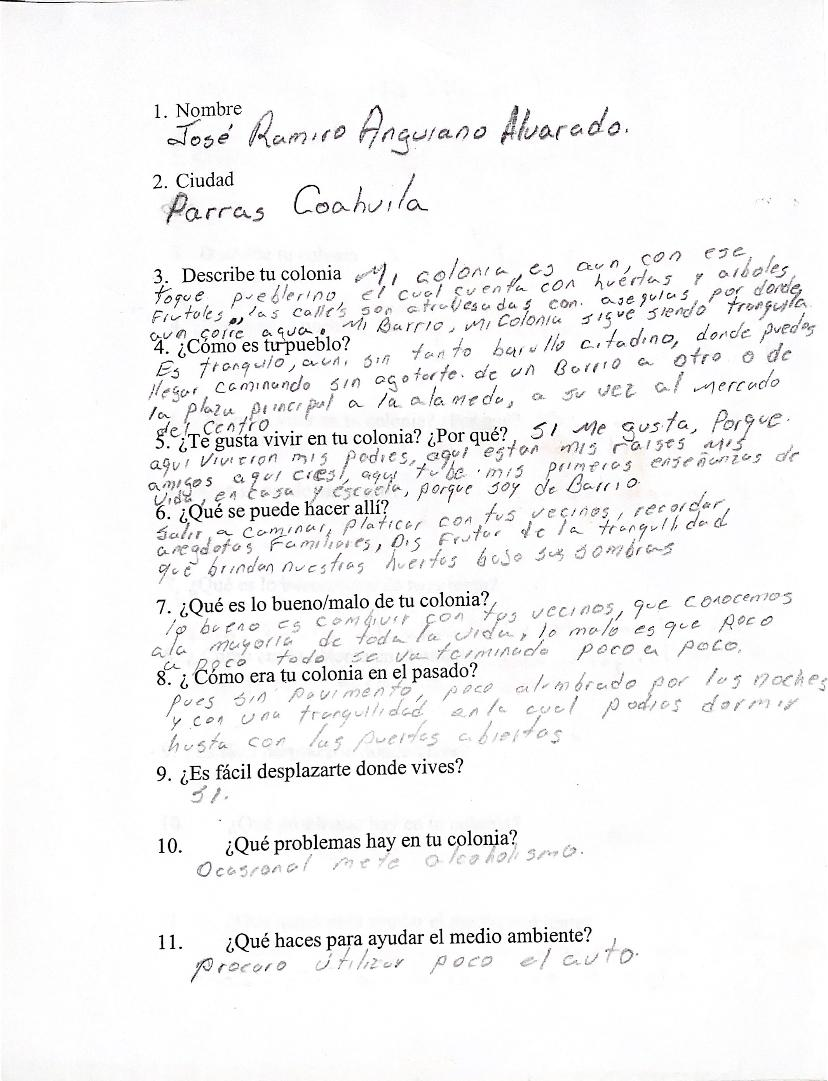 1. Nombre
José Ramiro Anguiano Alvarado.
2. Ciudad
Parras Coahuila
3. Describe tu colonia Mi colonia, es aun, con ese
toque pueblerino, el cual cuenta con huertas y arboles
Frutales, las calles son atravesadas con asequias por donde
aun corre agua. Mi Barrio, Mi Colonia sigue siendo tranquila
4. ¿Cómo es tu pueblo?
Es tranquilo, aun sin tanto barullo citadino, donde puedas
llegar caminando sin agotarte de un Barrio a otro o de
la plaza principal a la alameda, a su vez al Mercado
del Centro
5. ¿Te gusta vivir en tu colonia? ¿Por qué? SI Me gusta, Porque
aqui Vivieron mis padres, aqui estan mis raises Mis
amigos aqui creci, aqui tube mis primeras enseñanzas de
Vida, en casa y escuela, porque soy de Barrio
6. ¿Qué se puede hacer allí?
Salir a caminar, platicar con tus vecinos, recordar
anegdotas Familiares, Disfrutar de la tranquilidad
que brindan nuestras huertas bajo sus sombras
7. ¿Qué es lo bueno/malo de tu colonia?
lo bueno es combivir con tus vecinos, que conocemos
ala mayoria de toda la vida, lo malo es que poco
a poco todo se va terminado poco a poco.
8. ¿ Cómo era tu colonia en el pasado?
pues sin pavimento, poco alombrado por las noches
y con una tranquilidad en la cual podias dormir
hasta con las puertas abiertas
9. ¿Es fácil desplazarte donde vives?
SI.
10. ¿Qué problemas hay en tu colonia?
Ocasional mete alcoholismo.
11. ¿Qué haces para ayudar el medio ambiente?
procuro útilizar poco el auto.